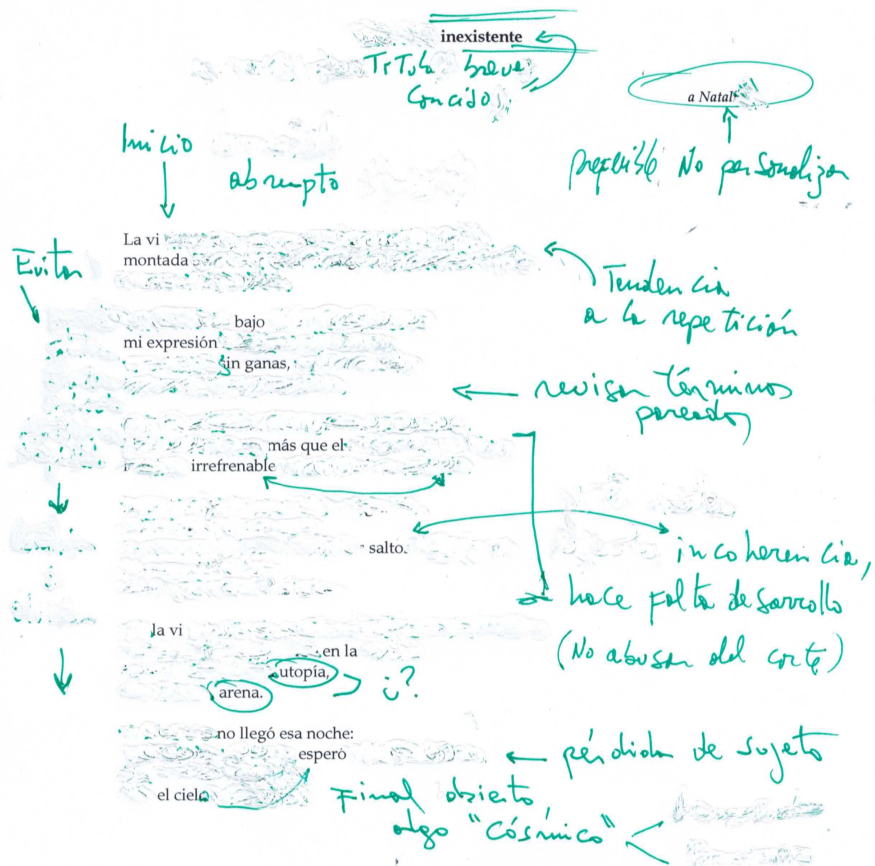 inexistente
Título breve
conciso
a Natal
Inicio
abrupto
preferible No personalizar
La vi
montada
Evitar
Tendencia
a la repetición
bajo
mi expresión
sin ganas,
revisar términos
pareados
más que el
irrefrenable
salto.
incoherencia,
hace falta desarrollo
(No abusar del corte)
la vi
en la
utopía,
arena.
¿?
no llegó esa noche:
esperó
pérdida de sujeto
el cielo
Final abierto,
algo "cósmico"